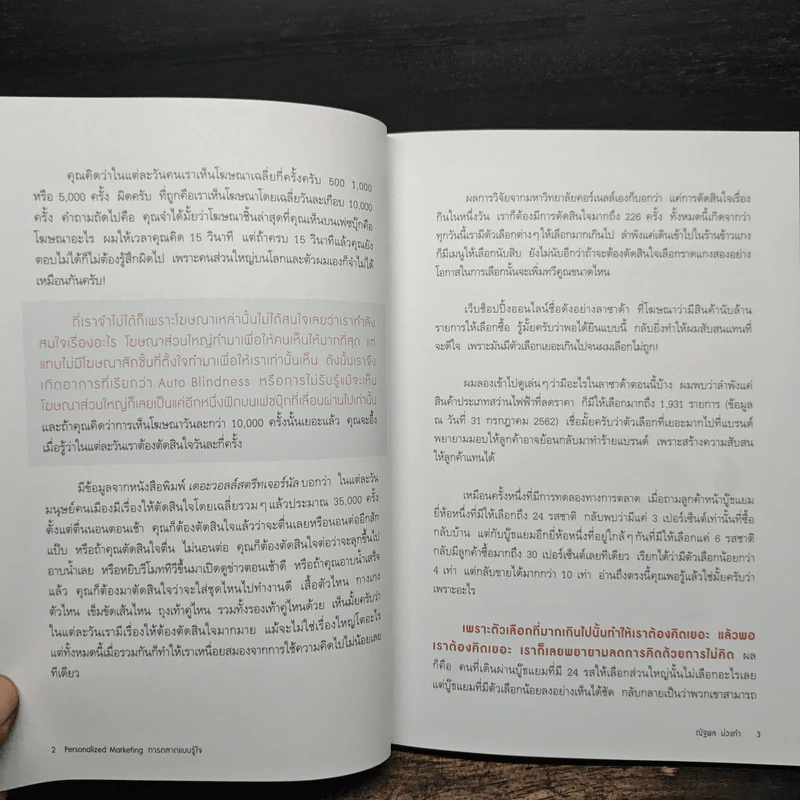 คุณคิดว่าในแต่ละวันคนเราเห็นโฆษณาเฉลี่ยกี่ครั้งครับ 500 1,000
หรือ 5,000 ครั้ง ผิดครับ ที่ถูกคือเราเห็นโฆษณาโดยเฉลี่ยวันละเกือบ 10,000
ครั้ง คำถามถัดไปคือ คุณจำได้มั้ยว่าโฆษณาชิ้นล่าสุดที่คุณเห็นบนเฟซบุ๊กคือ
โฆษณาอะไร ผมให้เวลาคุณคิด 15 วินาที แต่ถ้าครบ 15 วินาทีแล้วคุณยัง
ตอบไม่ได้ก็ไม่ต้องรู้สึกผิดไป เพราะคนส่วนใหญ่บนโลกและตัวผมเองก็จำไม่ได้
เหมือนกันครับ!
ที่เราจำไม่ได้ก็เพราะโฆษณาเหล่านั้นไม่ได้สนใจเลยว่าเรากำลัง
สนใจเรื่องอะไร โฆษณาส่วนใหญ่ทำมาเพื่อให้คนเห็นให้มากที่สุด แต่
แทบไม่มีโฆษณาสักชิ้นที่ตั้งใจทำมาเพื่อให้เราเท่านั้นเห็น ดังนั้นเราจึง
เกิดอาการที่เรียกว่า Auto Blindness หรือการไม่รับรู้แม้จะเห็น
โฆษณาส่วนใหญ่ก็เลยเป็นแค่อีกหนึ่งฟีดบนเฟซบุ๊กที่เลื่อนผ่านไปเท่านั้น
และถ้าคุณคิดว่าการเห็นโฆษณาวันละกว่า 10,000 ครั้งนั้นเยอะแล้ว คุณจะอึ้ง
เมื่อรู้ว่าในแต่ละวันเราต้องตัดสินใจวันละกี่ครั้ง
มีข้อมูลจากหนังสือพิมพ์ เดอะวอลล์สตรีทเจอร์นัล บอกว่า ในแต่ละวัน
มนุษย์คนเมืองมีเรื่องให้ตัดสินใจโดยเฉลี่ยรวมๆ แล้วประมาณ 35,000 ครั้ง
ตั้งแต่ตื่นนอนตอนเช้า คุณก็ต้องตัดสินใจแล้วว่าจะตื่นเลยหรือนอนต่ออีกสัก
แป๊บ หรือถ้าคุณตัดสินใจตื่น ไม่นอนต่อ คุณก็ต้องตัดสินใจต่อว่าจะลุกขึ้นไป
อาบน้ำเลย หรือหยิบรีโมททีวีขึ้นมาเปิดดูข่าวตอนเช้าดี หรือถ้าคุณอาบน้ำเสร็จ
แล้ว คุณก็ต้องมาตัดสินใจว่าจะใส่ชุดไหนไปทำงานดี เสื้อตัวไหน กางเกง
ตัวไหน เข็มขัดเส้นไหน ถุงเท้าคู่ไหน รวมทั้งรองเท้าคู่ไหนด้วย เห็นมั้ยครับว่า
ในแต่ละวันเรามีเรื่องให้ต้องตัดสินใจมากมาย แม้จะไม่ใช่เรื่องใหญ่โตอะไร
แต่ทั้งหมดนี้เมื่อรวมกันก็ทำให้เราเหนื่อยสมองจากการใช้ความคิดไปไม่น้อยเลย
ทีเดียว
2 Personalized Marketing การตลาดแบบรู้ใจ
ผลการวิจัยจากมหาวิทยาลัยคอร์เนลล์เองก็บอกว่า แค่การตัดสินใจเรื่อง
กินในหนึ่งวัน เราก็ต้องมีการตัดสินใจมากถึง 226 ครั้ง ทั้งหมดนี้เกิดจากว่า
ทุกวันนี้เรามีตัวเลือกต่างๆ ให้เลือกมากเกินไป ลำพังแค่เดินเข้าไปในร้านข้าวแกง
ก็มีเมนูให้เลือกนับสิบ ยังไม่นับอีกว่าถ้าจะต้องตัดสินใจเลือกราดแกงสองอย่าง
โอกาสในการเลือกนั้นจะเพิ่มทวีคูณขนาดไหน
เว็บช็อปปิ้งออนไลน์ชื่อดังอย่างลาซาด้า ที่โฆษณาว่ามีสินค้านับล้าน
รายการให้เลือกซื้อ รู้มั้ยครับว่าพอได้ยินแบบนี้ กลับยิ่งทำให้ผมสับสนแทนที่
จะดีใจ เพราะมันมีตัวเลือกเยอะเกินไปจนผมเลือกไม่ถูก!
ผมลองเข้าไปดูเล่นๆ ว่ามีอะไรในลาซาด้าตอนนี้บ้าง ผมพบว่าลำพังแค่
สินค้าประเภทสว่านไฟฟ้าที่ลดราคา ก็มีให้เลือกมากถึง 1,931 รายการ (ข้อมูล
ณ วันที่ 31 กรกฎาคม 2562) เชื่อมั้ยครับว่าตัวเลือกที่เยอะมากไปที่แบรนด์
พยายามมอบให้ลูกค้าอาจย้อนกลับมาทำร้ายแบรนด์ เพราะสร้างความสับสน
ให้ลูกค้าแทนได้
เหมือนครั้งหนึ่งที่มีการทดลองทางการตลาด เมื่อถามลูกค้าหน้าบู๊ธแยม
ยี่ห้อหนึ่งที่มีให้เลือกถึง 24 รสชาติ กลับพบว่ามีแค่ 3 เปอร์เซ็นต์เท่านั้นที่ซื้อ
กลับบ้าน แต่กับบู๊ธแยมอีกยี่ห้อหนึ่งที่อยู่ใกล้ๆ กันที่มีให้เลือกแค่ 6 รสชาติ
กลับมีลูกค้าซื้อมากถึง 30 เปอร์เซ็นต์เลยทีเดียว เรียกได้ว่ามีตัวเลือกน้อยกว่า
4 เท่า แต่กลับขายได้มากกว่า 10 เท่า อ่านถึงตรงนี้คุณพอรู้แล้วใช่มั้ยครับว่า
เพราะอะไร
เพราะตัวเลือกที่มากเกินไปนั้นทำให้เราต้องคิดเยอะ แล้วพอ
เราต้องคิดเยอะ เราก็เลยพยายามลดการคิดด้วยการไม่คิด ผล
ก็คือ คนที่เดินผ่านบู๊ธแยมที่มี 24 รสให้เลือกส่วนใหญ่นั้นไม่เลือกอะไรเลย
แต่บู๊ธแยมที่มีตัวเลือกน้อยลงอย่างเห็นได้ชัด กลับกลายเป็นว่าพวกเขาสามารถ
ณัฐพล ม่วงทำ 3